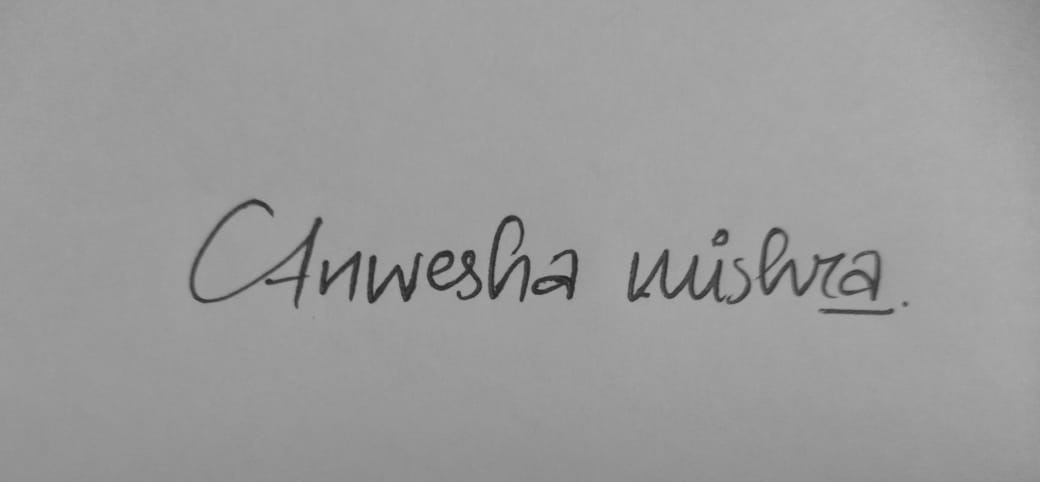 Anwesha mishra.